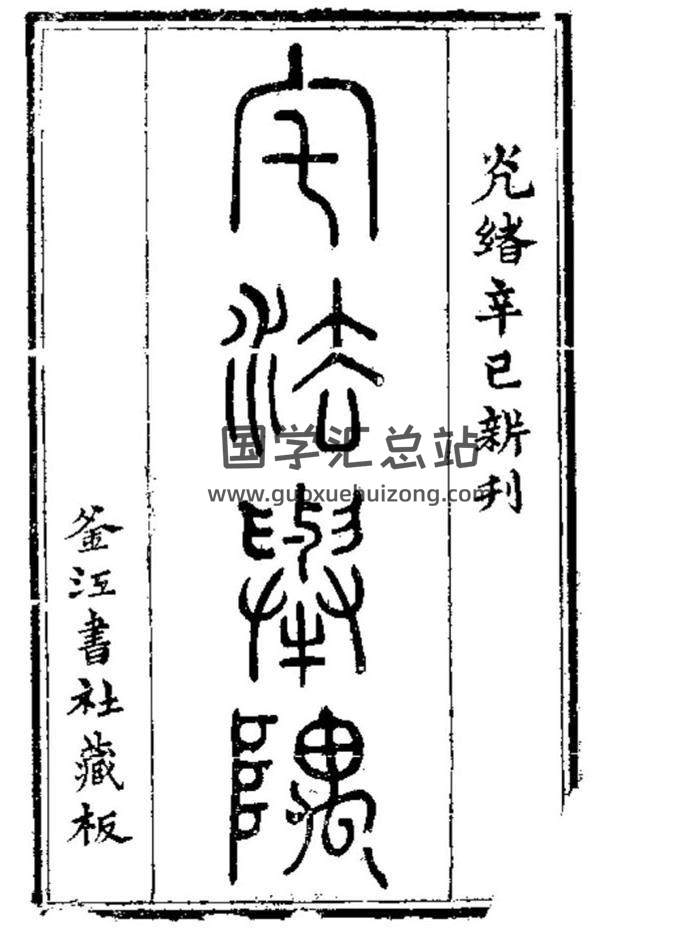 光緒辛巳新刊
宅法舉隅
釜江書社藏板
国学汇总站
www.guoxuehuizong.com